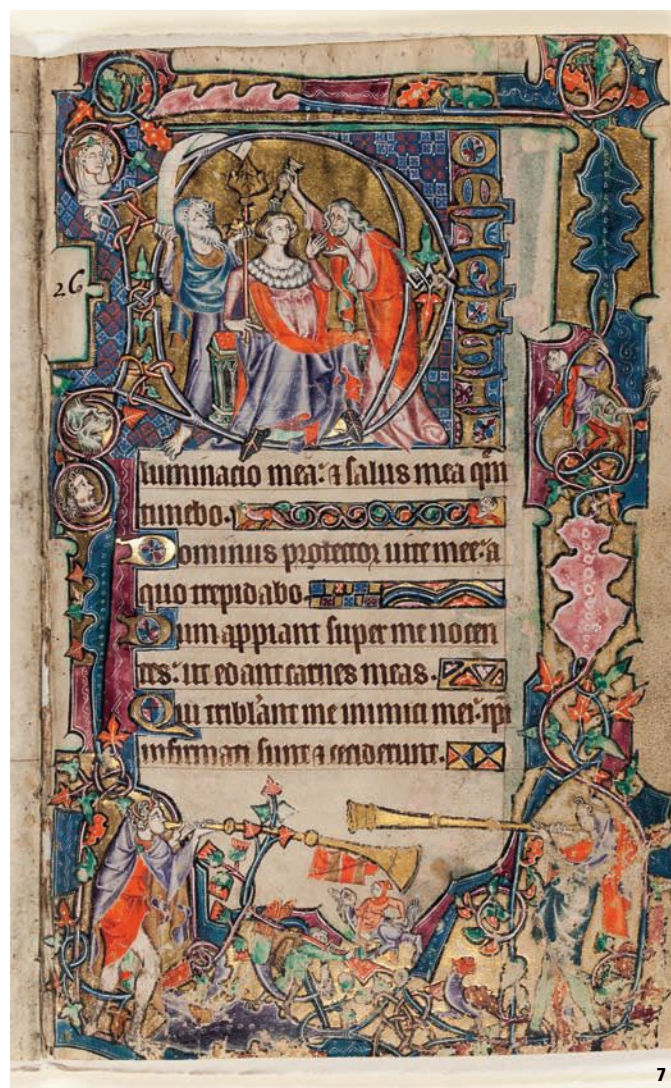 26
D
OMINUS I
luminacio mea: ⁊ salus mea quē
timebo.
Dominus protector uite mee: a
quo trepidabo.
Dum appiant super me nocen
tes: ut edant carnes meas.
Qui tribl'ant me inimici mei: ipi
infirmati sunt ⁊ ceciderunt.
7